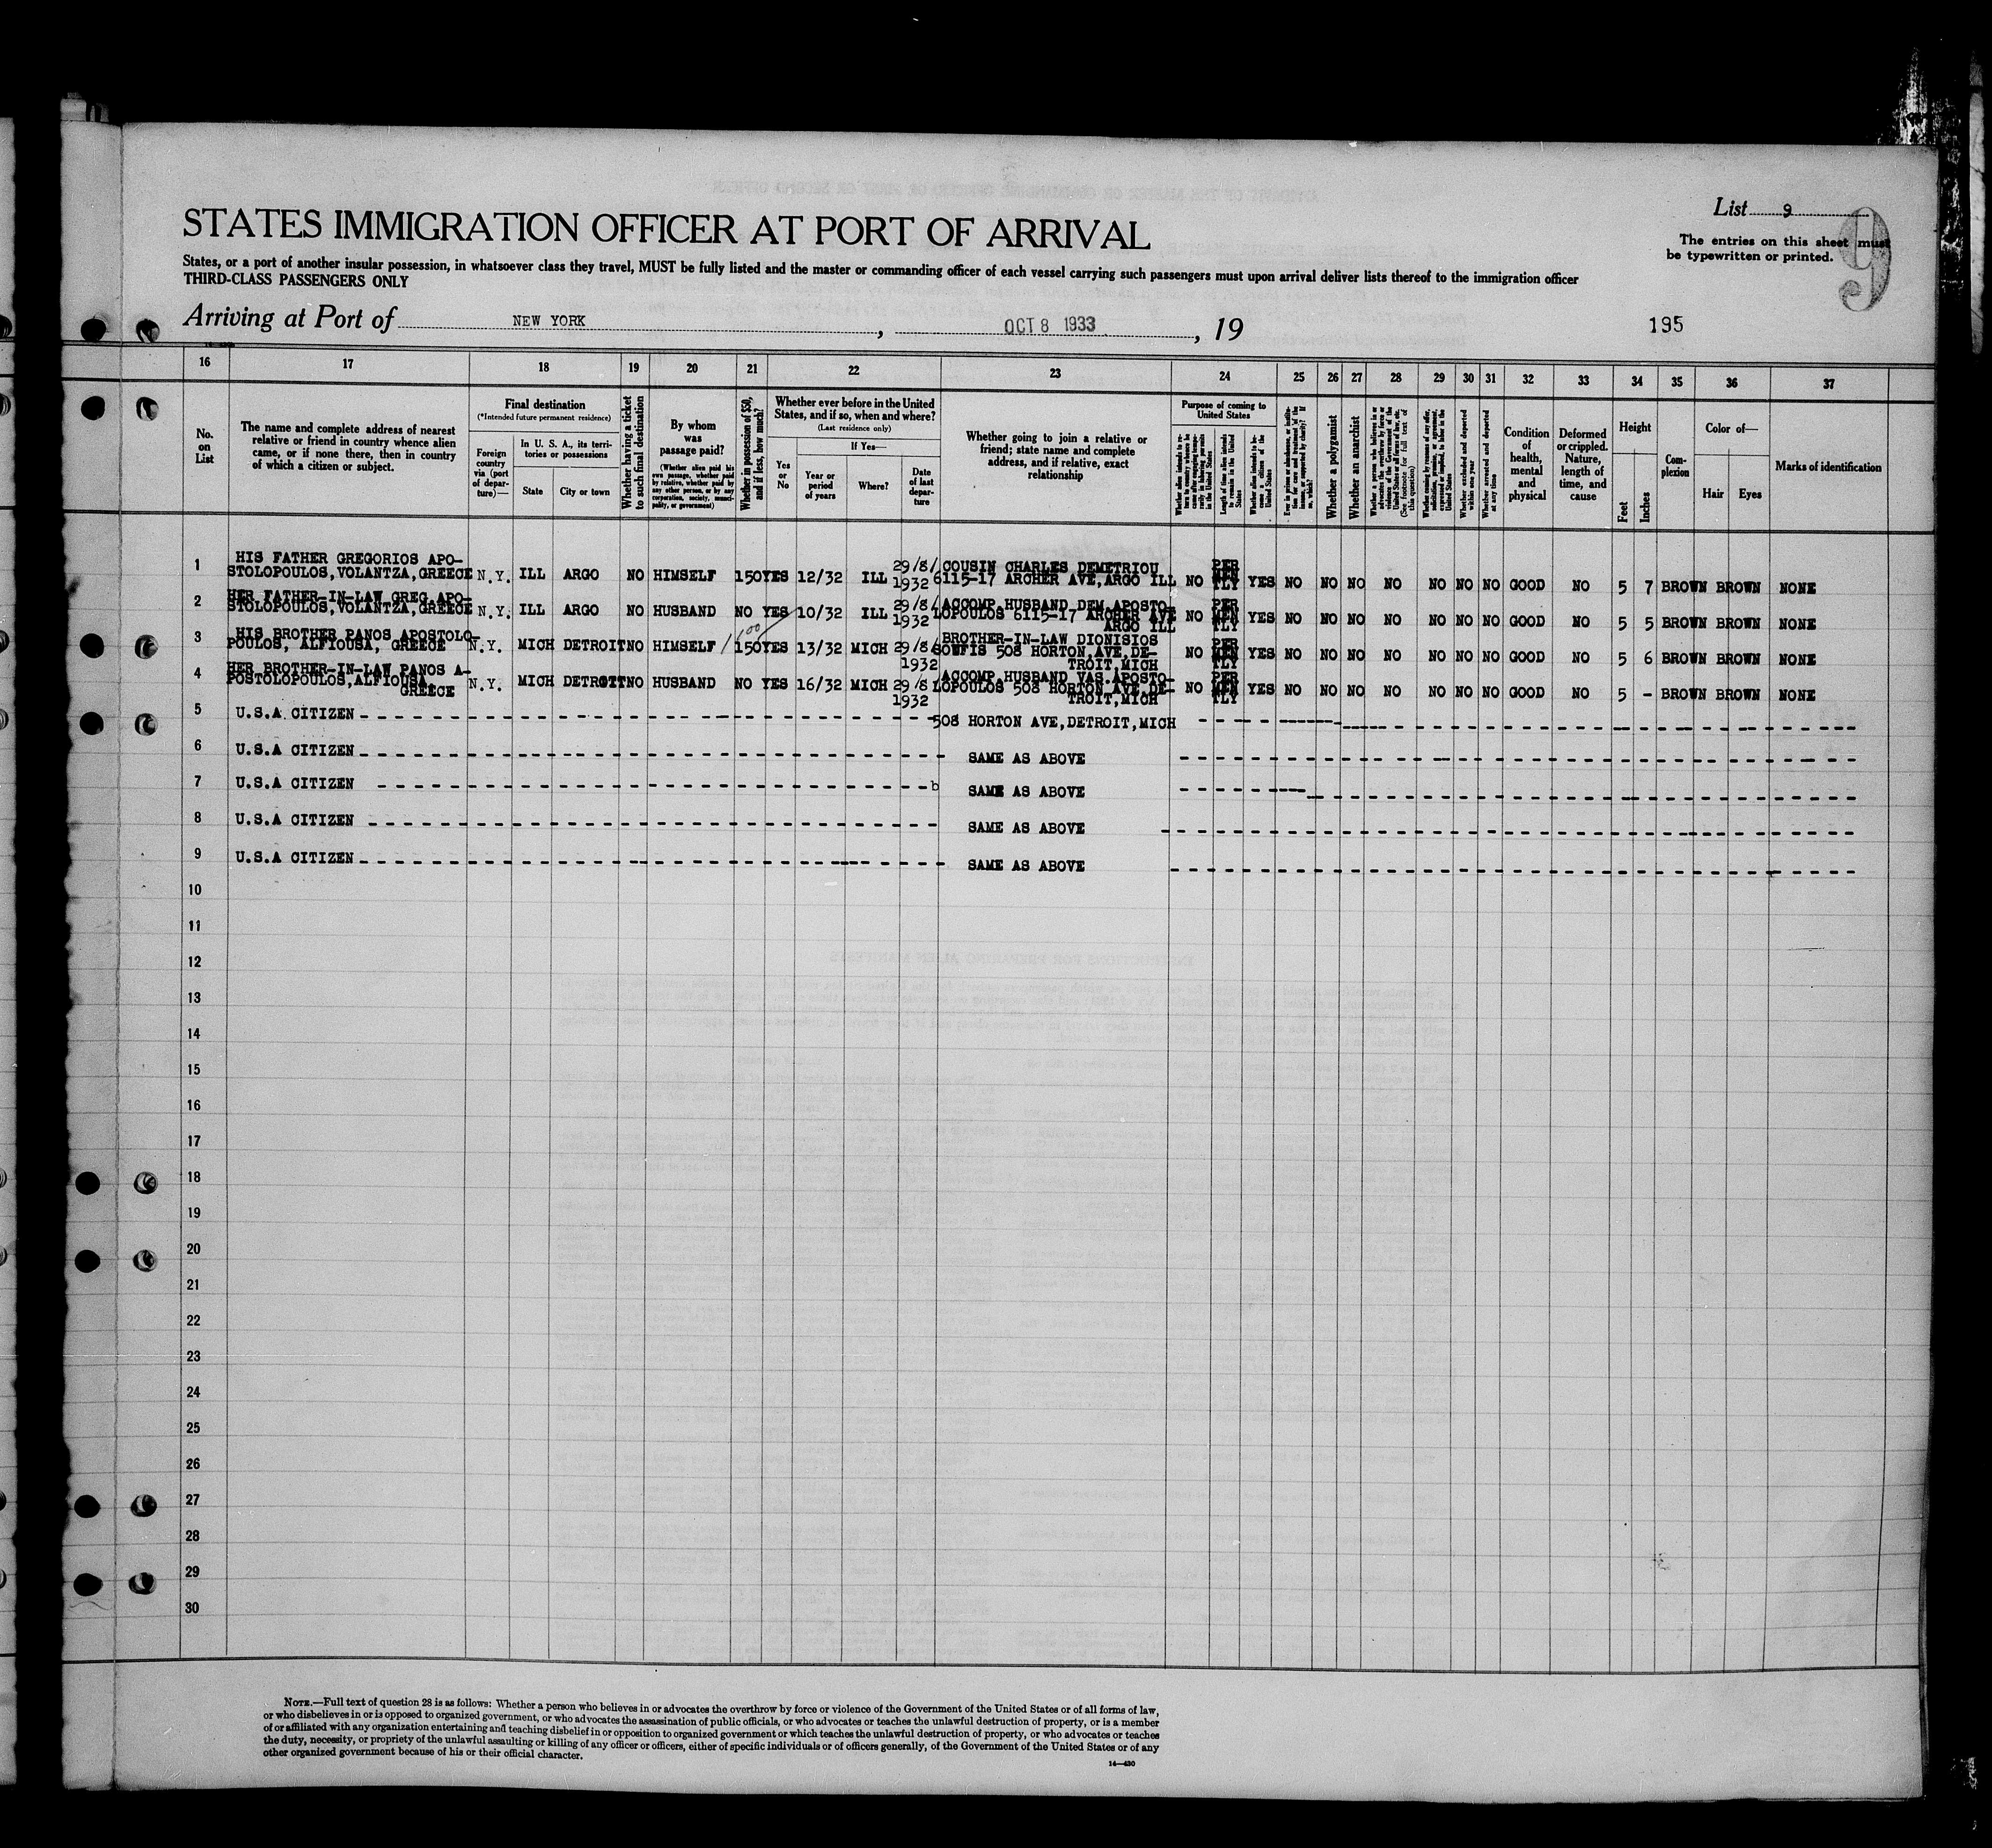 List 9
STATES IMMIGRATION OFFICER AT PORT OF ARRIVAL
The entries on this sheet must
be typewritten or printed.
9
States, or a port of another insular possession, in whatsoever class they travel, MUST be fully listed and the master or commanding officer of each vessel carrying such passengers must upon arrival deliver lists thereof to the immigration officer
THIRD-CLASS PASSENGERS ONLY
Arriving at Port of NEW YORK, OCT 8 1933, 19
195
16 17 18 19 20 21 22 23 24 25 26 27 28 29 30 31 32 33 34 35 36 37
No. on List
The name and complete address of nearest relative or friend in country whence alien came, or if none there, then in country of which a citizen or subject.
Final destination
(*Intended future permanent residence)
Foreign country via (port of departure)—
In U. S. A., its territories or possessions
State
City or town
Whether having a ticket to such final destination
By whom was passage paid?
(Whether alien paid his own passage, whether paid by relative, whether paid by any other person, or by any corporation, society, municipality, or government)
Whether in possession of $50, and if less, how much?
Whether ever before in the United States, and if so, when and where?
(Last residence only)
Yes or No
If Yes—
Year or period of years
Where?
Date of last departure
Whether going to join a relative or friend; state name and complete address, and if relative, exact relationship
Purpose of coming to United States
Whether alien intends to return to country whence he came after engaging temporarily in laboring pursuits in the United States
Length of time alien intends to remain in the United States
Whether alien intends to become a citizen of the United States
Whether a polygamist
Whether an anarchist
Whether excluded and deported within one year
Whether arrested and deported at any time
Condition of health, mental and physical
Deformed or crippled. Nature, length of time, and cause
Height
Feet
Inches
Complexion
Color of—
Hair
Eyes
Marks of identification
1 HIS FATHER GREGORIOS APO-
STOLOPOULOS, VOLANTZA, GREECE N.Y. ILL ARGO NO HIMSELF 150 YES 12/32 ILL 29/8/1932 COUSIN CHARLES DEMETRIOU
6115-17 ARCHER AVE, ARGO ILL NO PERMENTLY YES NO NO NO NO NO NO NO GOOD NO 5 7 BROWN BROWN NONE
2 HER FATHER-IN-LAW GREG. APO-
STOLOPOULOS, VOLANTZA, GREECE N.Y. ILL ARGO NO HUSBAND NO YES 10/32 ILL 29/8/1932 ACCOMP. HUSBAND DEM. APOSTO-
LOPOULOS 6115-17 ARCHER AVE
ARGO ILL NO PERMENTLY YES NO NO NO NO NO NO NO GOOD NO 5 5 BROWN BROWN NONE
3 HIS BROTHER PANOS APOSTOLO-
POULOS, ALFIOUSA, GREECE N.Y. MICH DETROIT NO HIMSELF 150 YES 13/32 MICH 29/8/1932 BROTHER-IN-LAW DIONISIOS
508 HORTON, AVE, DE-
TROIT, MICH NO PERMENTLY YES NO NO NO NO NO NO NO GOOD NO 5 6 BROWN BROWN NONE
4 HER BROTHER-IN-LAW PANOS A-
POSTOLOPOULOS, ALFIOUSA,
GREECE N.Y. MICH DETROIT NO HUSBAND NO YES 16/32 MICH 29/8 1932 ACCOMP. HUSBAND VAS. APOSTO-
LOPOULOS 508 HORTON AVE, DE-
TROIT, MICH NO PERMENTLY YES NO NO NO NO NO NO NO GOOD NO 5 - BROWN BROWN NONE
5 U.S.A. CITIZEN 508 HORTON AVE, DETROIT, MICH
6 U.S.A CITIZEN SAME AS ABOVE
7 U.S.A CITIZEN b SAME AS ABOVE
8 U.S.A CITIZEN SAME AS ABOVE
9 U.S.A CITIZEN SAME AS ABOVE
10
11
12
13
14
15
16
17
18
19
20
21
22
23
24
25
26
27
28
29
30
NOTE.—Full text of question 28 is as follows: Whether a person who believes in or advocates the overthrow by force or violence of the Government of the United States or of all forms of law,
or who disbelieves in or is opposed to organized government, or who advocates the assassination of public officials, or who advocates or teaches the unlawful destruction of property, or is a member
of or affiliated with any organization entertaining and teaching disbelief in or opposition to organized government or which teaches the unlawful destruction of property, or who advocates or teaches
the duty, necessity, or propriety of the unlawful assaulting or killing of any officer or officers, either of specific individuals or of officers generally, of the Government of the United States or of any
other organized government because of his or their official character.
14—430